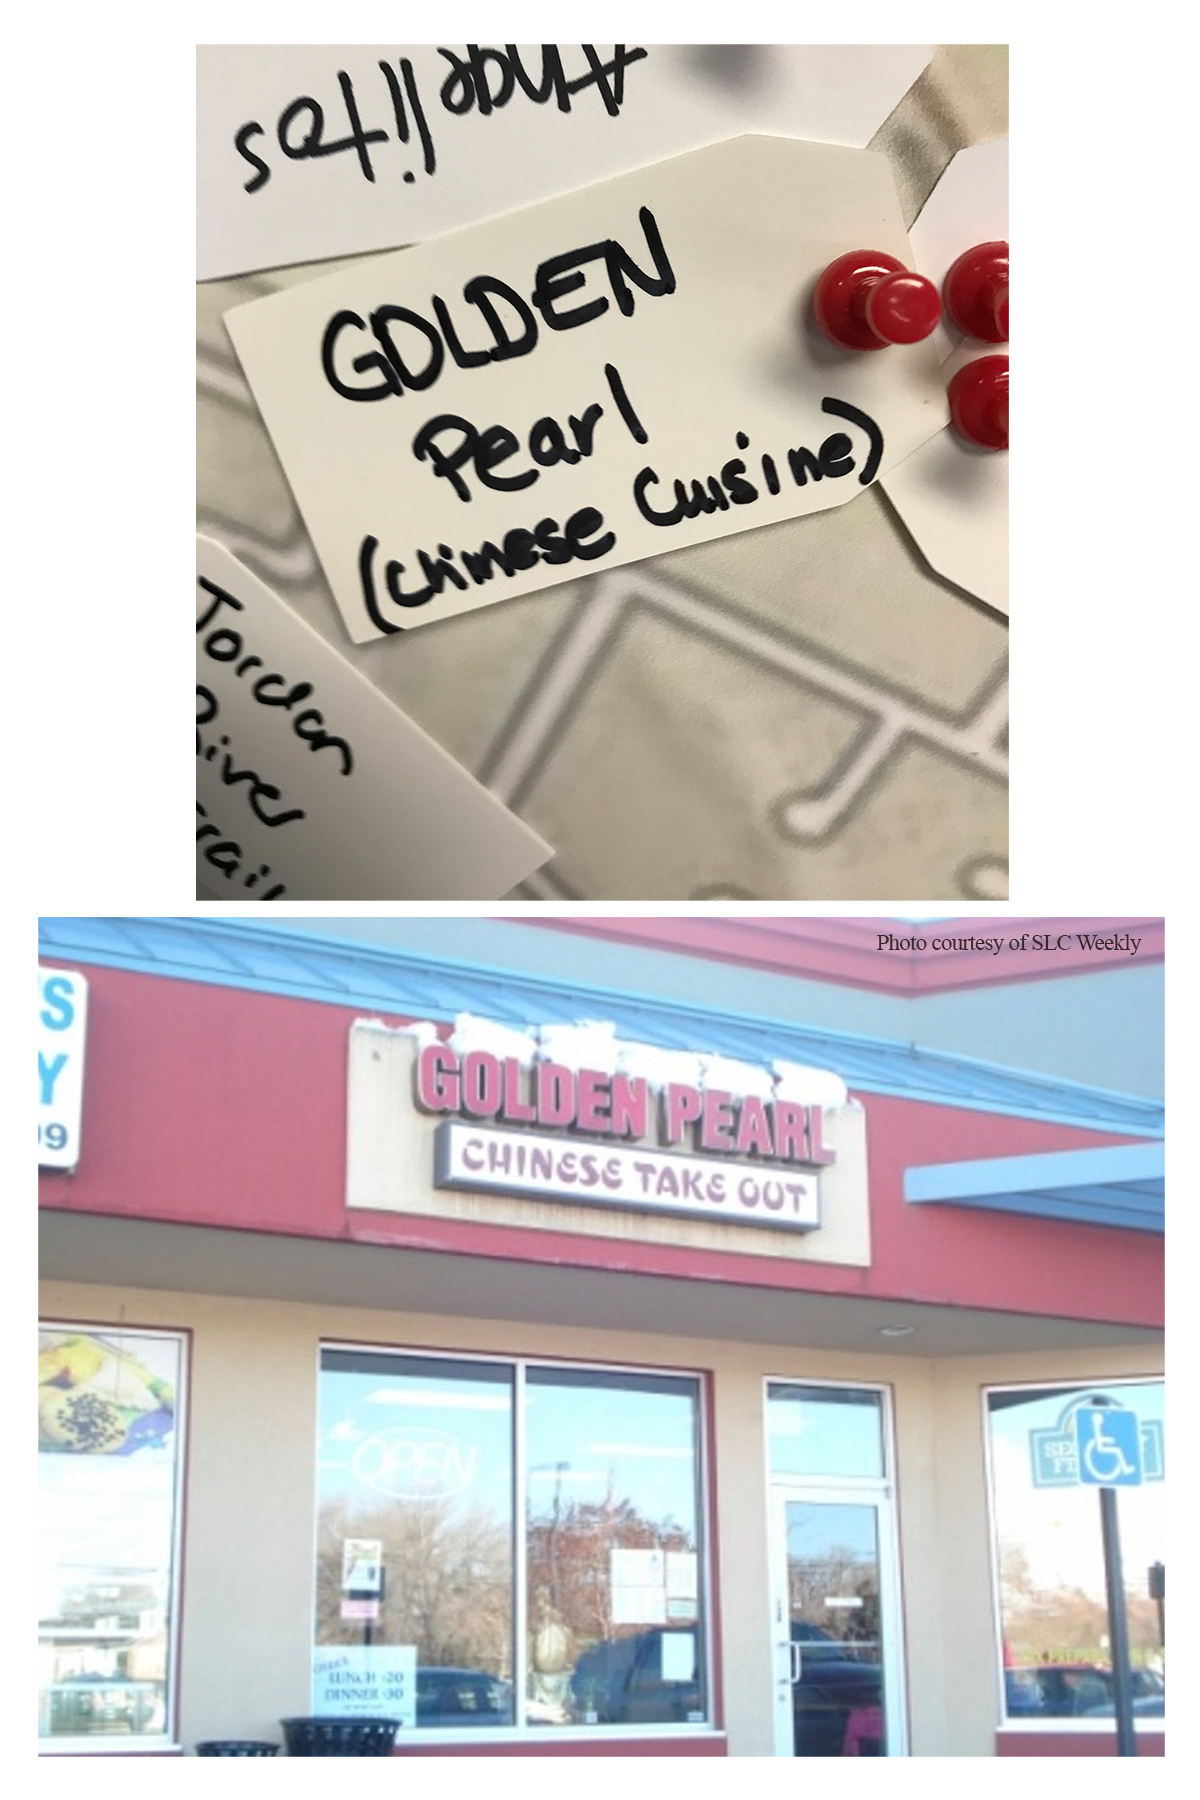 Angelitos
GOLDEN
Pearl
(Chinese Cuisine)
Jordan
River
Trail
Photo courtesy of SLC Weekly
S
Y
99
GOLDEN PEARL
CHINESE TAKE OUT
OPEN
LUNCH
DINNER